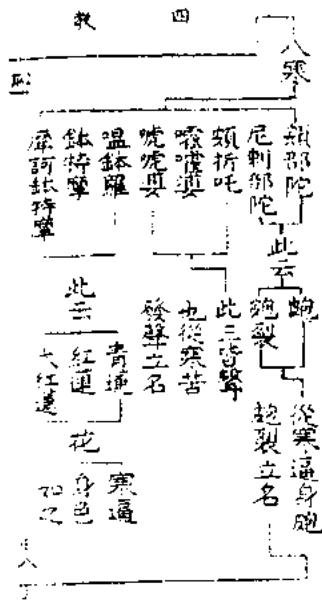 四教
八寒
頞部陀
尼剌部陀
頞折吒
嚯嚯婆
唬唬婆
嗢鉢羅
鉢特摩
摩訶鉢特摩
此云
皰
皰裂
從寒逼身皰
皰裂立名
此三皆聲
也從寒苦
發聲立名
此云
青蓮
紅蓮
大紅蓮
花
寒逼
身色
如之